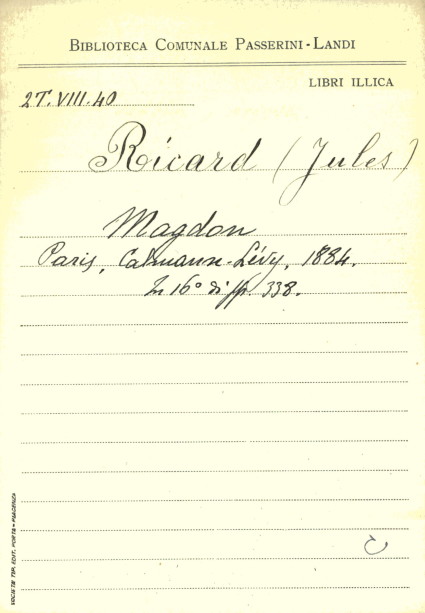 BIBLIOTECA COMUNALE PASSERINI-LANDI
LIBRI ILLICA
2T.VIII.40
Ricard (Jules)
Magdon
Paris, Calmann-Lévy, 1884.
In 16° di pp. 338.
SOCIETÀ TIP. EDIT. PORTA - PIACENZA